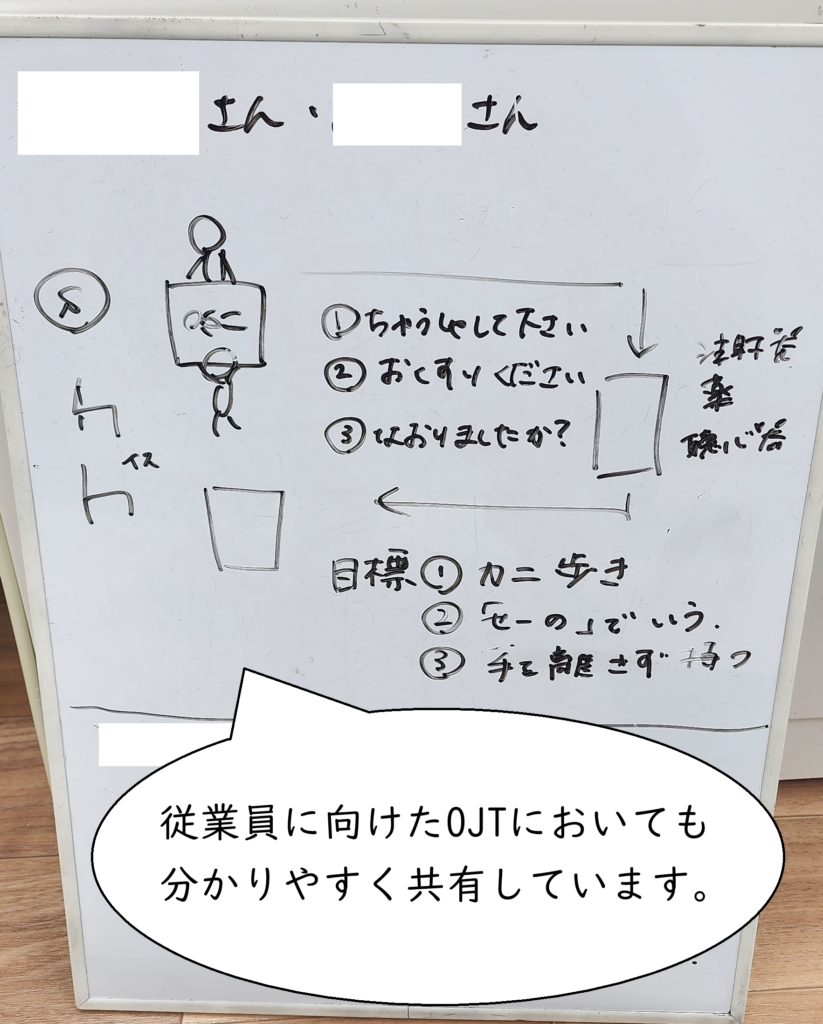 さん・ さん
①ちゅうしゃして下さい
②おくすりください
③なおりましたか?
注射器
薬
聴心器
イス
目標①カニ歩き
②「せーの」でいう.
③手を離さず持つ
従業員に向けたOJTにおいても
分かりやすく共有しています。